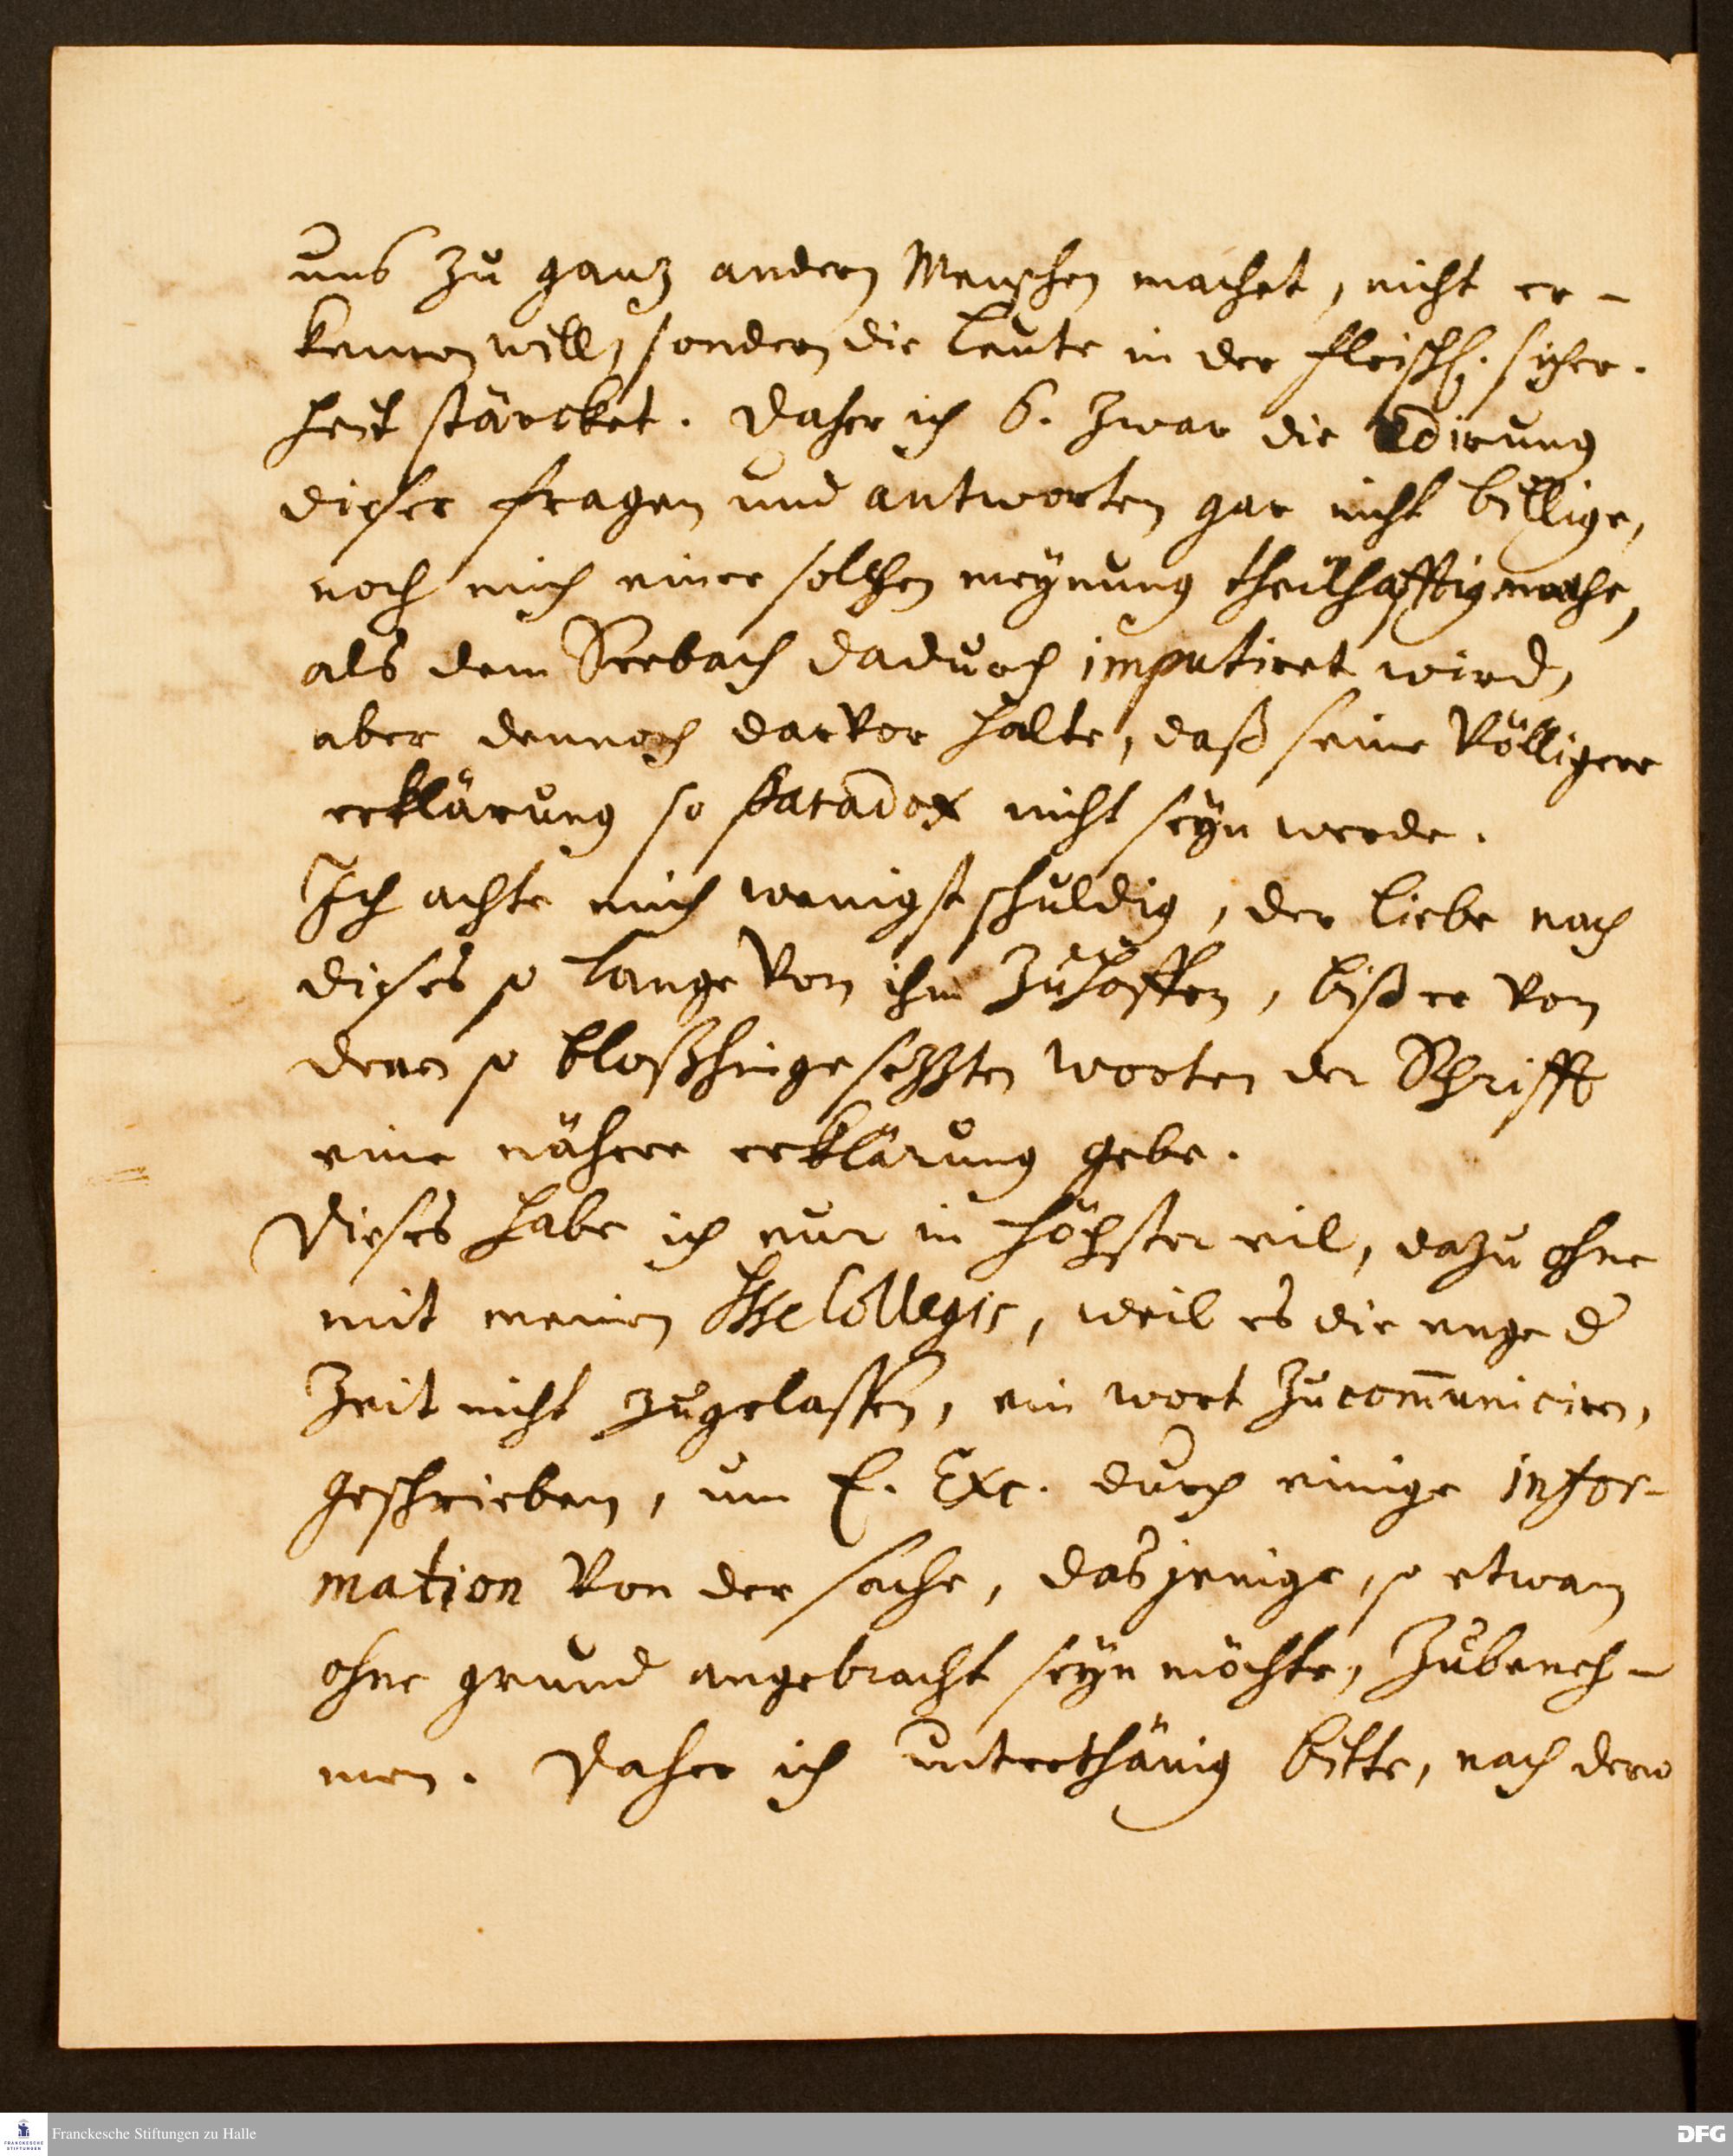 uns zu ganz andern Menschen machet, nicht er-
kennen will, sondern die Leute in der fleischl. sicher-
heit stärcket. Daher ich 6. zwar die Edirung
dieser fragen und antworten gar nicht billige,
noch mich einer solchen meynung theilhafftig mache,
als dem Seebach dadurch imputiret wird,
aber dennoch darvor halte, daß seine völligere
erklärung so paradox nicht seyn werde.
Ich achte mich wenigst schuldig, der Liebe nach
dieses so lange von ihm zuhoffen, biß er von
denen so bloßhingesetzten worten der Schrifft
eine nähere erklärung gebe.
Dieses habe ich nur in höchster eil, dazu ohne
mit meinen Collegis, weil es die enge d
Zeit nicht zugelassen, ein wort zucom̄uniciren,
geschrieben, um E. Exc. durch einige infor-
mation von der sache, dasjenige, so etwan
ohne grund angebracht seyn möchte, zubeneh-
men. Daher ich unterthänig bitte, nach dero
Franckesche Stiftungen zu Halle
FRANCKESCHE
STIFTUNGEN
DFG